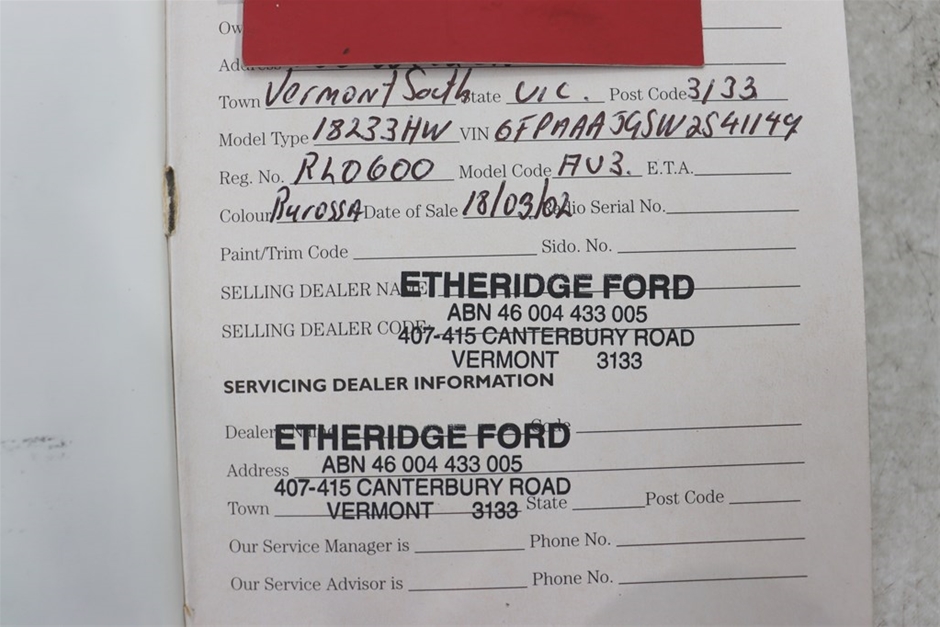 Ow
Ad
Town Vermont South State VIC. Post Code 3133
Model Type 18233HW VIN 6FPAAAJGSW2S41149
Reg. No. RLO600 Model Code AU3. E.T.A.
Colour Barossa Date of Sale 18/03/02 Radio Serial No.
Paint/Trim Code Sido. No.
SELLING DEALER NAME ETHERIDGE FORD
ABN 46 004 433 005
SELLING DEALER CODE 407-415 CANTERBURY ROAD
VERMONT 3133
SERVICING DEALER INFORMATION
Dealer Name Code
ETHERIDGE FORD
Address ABN 46 004 433 005
407-415 CANTERBURY ROAD
Town VERMONT 3133 State Post Code
Our Service Manager is Phone No.
Our Service Advisor is Phone No.